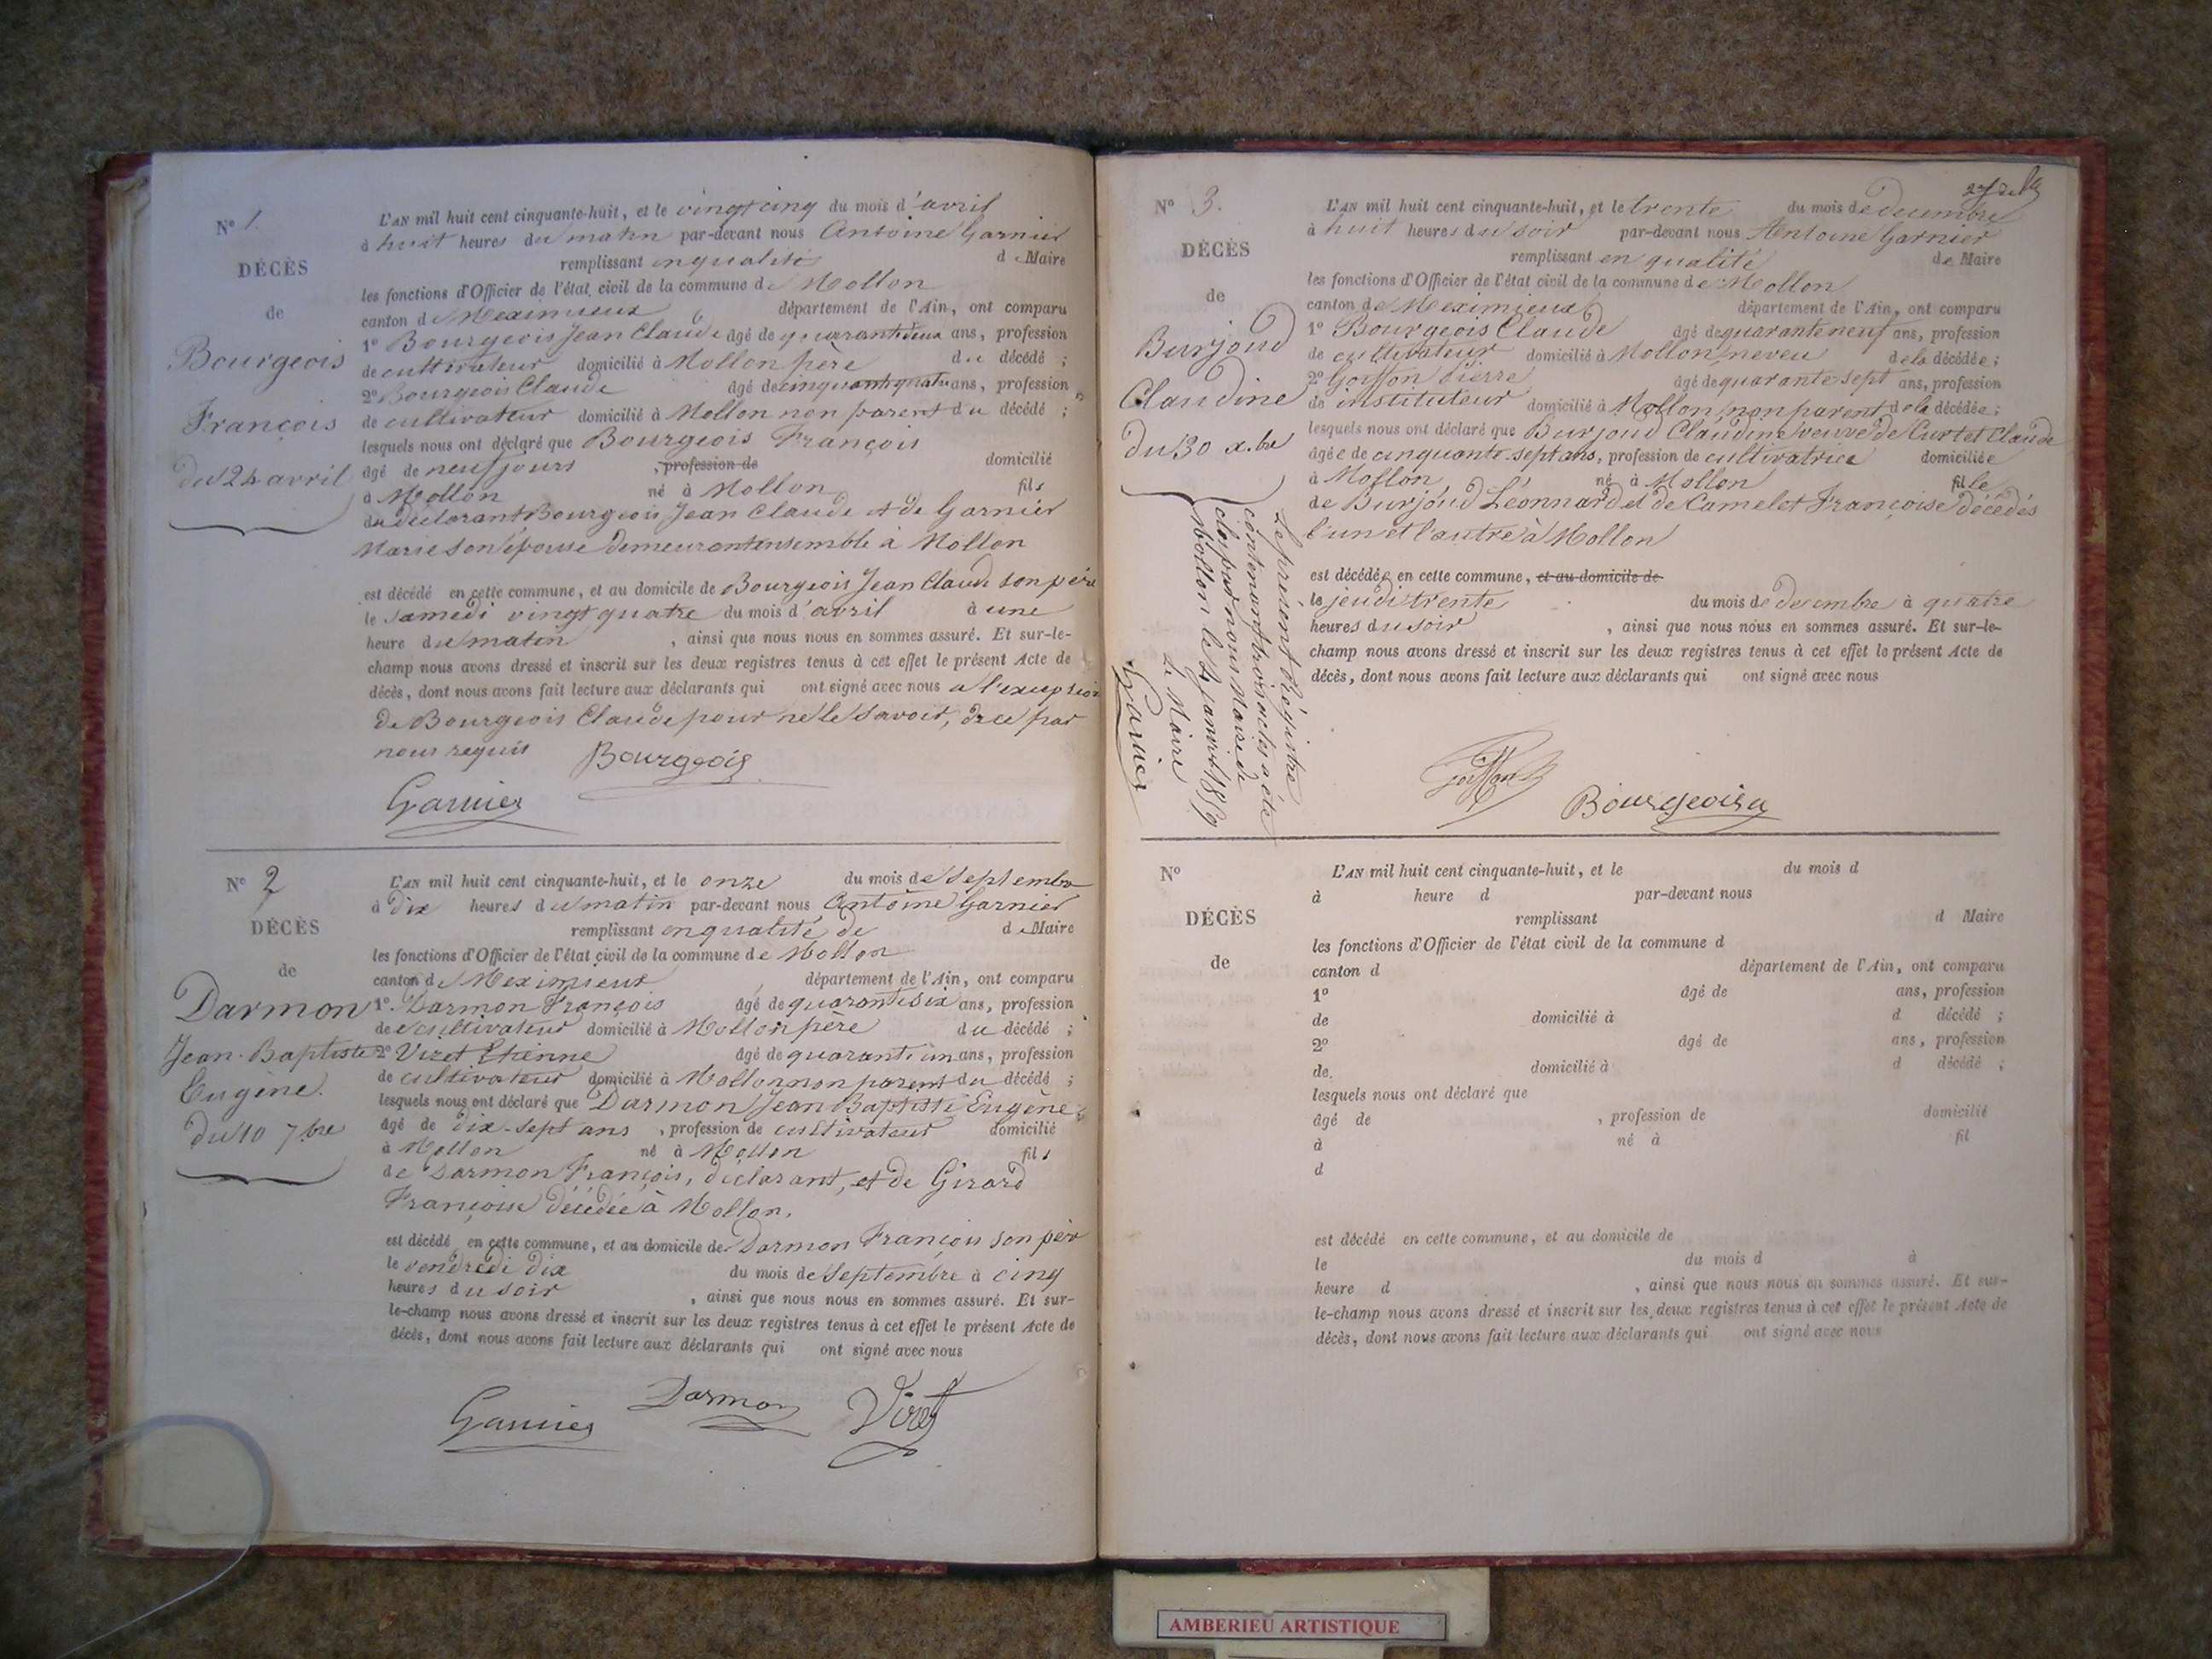 N° 1.
DÉCÈS
de
Bourgeois
François
du 24 avril
L'AN mil huit cent cinquante-huit, et le vingt cinq du mois d'avril
à huit heures du matin par-devant nous Antoine Garnier
remplissant en qualité de Maire
les fonctions d'Officier de l'état civil de la commune de Mollon
canton de Meximieux département de l'Ain, ont comparu
1° Bourgeois Jean Claude âgé de quarante deux ans, profession
de cultivateur domicilié à Mollon père du décédé ;
2° Bourgeois Claude âgé de cinquante quatre ans, profession
de cultivateur domicilié à Mollon non parent du décédé ;
lesquels nous ont déclaré que Bourgeois François
âgé de neuf jours , profession de domicilié
à Mollon né à Mollon fils
du déclarant Bourgeois Jean Claude et de Garnier
Marie son épouse demeurant ensemble à Mollon
est décédé en cette commune, et au domicile de Bourgeois Jean Claude son père
le samedi vingt quatre du mois d'avril à une
heure du matin , ainsi que nous nous en sommes assuré. Et sur-le-
champ nous avons dressé et inscrit sur les deux registres tenus à cet effet le présent Acte de
décès, dont nous avons fait lecture aux déclarants qui ont signé avec nous a l'exception
de Bourgeois Claude pour ne le savoir, de ce par
nous requis Bourgeois
Garnier
N° 2
DÉCÈS
de
Darmon
Jean-Baptiste
Eugène.
du 10 7bre
L'AN mil huit cent cinquante-huit, et le onze du mois de septembre
à dix heures du matin par-devant nous Antoine Garnier
remplissant en qualité de de Maire
les fonctions d'Officier de l'état civil de la commune de Mollon
canton de Meximieux , département de l'Ain, ont comparu
1° Darmon François âgé de quarante six ans, profession
de cultivateur domicilié à Mollon père du décédé ;
2° Viret Etienne âgé de quarante un ans, profession
de cultivateur domicilié à Mollon non parent du décédé ;
lesquels nous ont déclaré que Darmon Jean Baptiste Eugène
âgé de dix-sept ans , profession de cultivateur domicilié
à Mollon né à Mollon fils
de Darmon François, déclarant, et de Girard
Françoise décédée à Mollon.
est décédé en cette commune, et au domicile de Darmon François son père
le vendredi dix du mois de septembre à cinq
heures du soir , ainsi que nous nous en sommes assuré. Et sur-
le-champ nous avons dressé et inscrit sur les deux registres tenus à cet effet le présent Acte de
décès, dont nous avons fait lecture aux déclarants qui ont signé avec nous
Garnier Darmon Viret
N° 3.
DÉCÈS
de
Burjoud
Claudine
du 30 x.bre
L'AN mil huit cent cinquante-huit, et le trente du mois de decembre
à huit heures du soir par-devant nous Antoine Garnier
remplissant en qualité de Maire
les fonctions d'Officier de l'état civil de la commune de Mollon
canton de Meximieux département de l'Ain, ont comparu
1° Bourgeois Claude âgé de quarante neuf ans, profession
de cultivateur domicilié à Mollon neveu de la décédée ;
2° Goiffon Pierre âgé de quarante sept ans, profession
de instituteur domicilié à Mollon non parent de la décédée ;
lesquels nous ont déclaré que Burjoud Claudine veuve de Curtet Claude
âgée de cinquante-sept ans, profession de cultivatrice domiciliée
à Mollon né à Mollon fille
de Burjoud Léonnard et de Camelet Françoise décédés
l'un et l'autre à Mollon
est décédée en cette commune, et au domicile de
le jeudi trente du mois de decembre à quatre
heures du soir , ainsi que nous nous en sommes assuré. Et sur-le-
champ nous avons dressé et inscrit sur les deux registres tenus à cet effet le présent Acte de
décès, dont nous avons fait lecture aux déclarants qui ont signé avec nous
Goiffon Bourgeois
Le présent Régistre
contenant trois actes a été
clos par nous Maire de
Mollon le 4 janvier 1859
Le Maire
Garnier
N°
DÉCÈS
de
L'AN mil huit cent cinquante-huit, et le du mois d
à heure d par-devant nous
remplissant d Maire
les fonctions d'Officier de l'état civil de la commune d
canton d département de l'Ain, ont comparu
1° âgé de ans, profession
de domicilié à d décédé ;
2° âgé de ans, profession
de domicilié à d décédé ;
lesquels nous ont déclaré que
âgé de , profession de domicilié
à né à fil
d
est décédé en cette commune, et au domicile de
le du mois d à
heure d , ainsi que nous nous en sommes assuré. Et sur-
le-champ nous avons dressé et inscrit sur les deux registres tenus à cet effet le présent Acte de
décès, dont nous avons fait lecture aux déclarants qui ont signé avec nous
AMBERIEU ARTISTIQUE